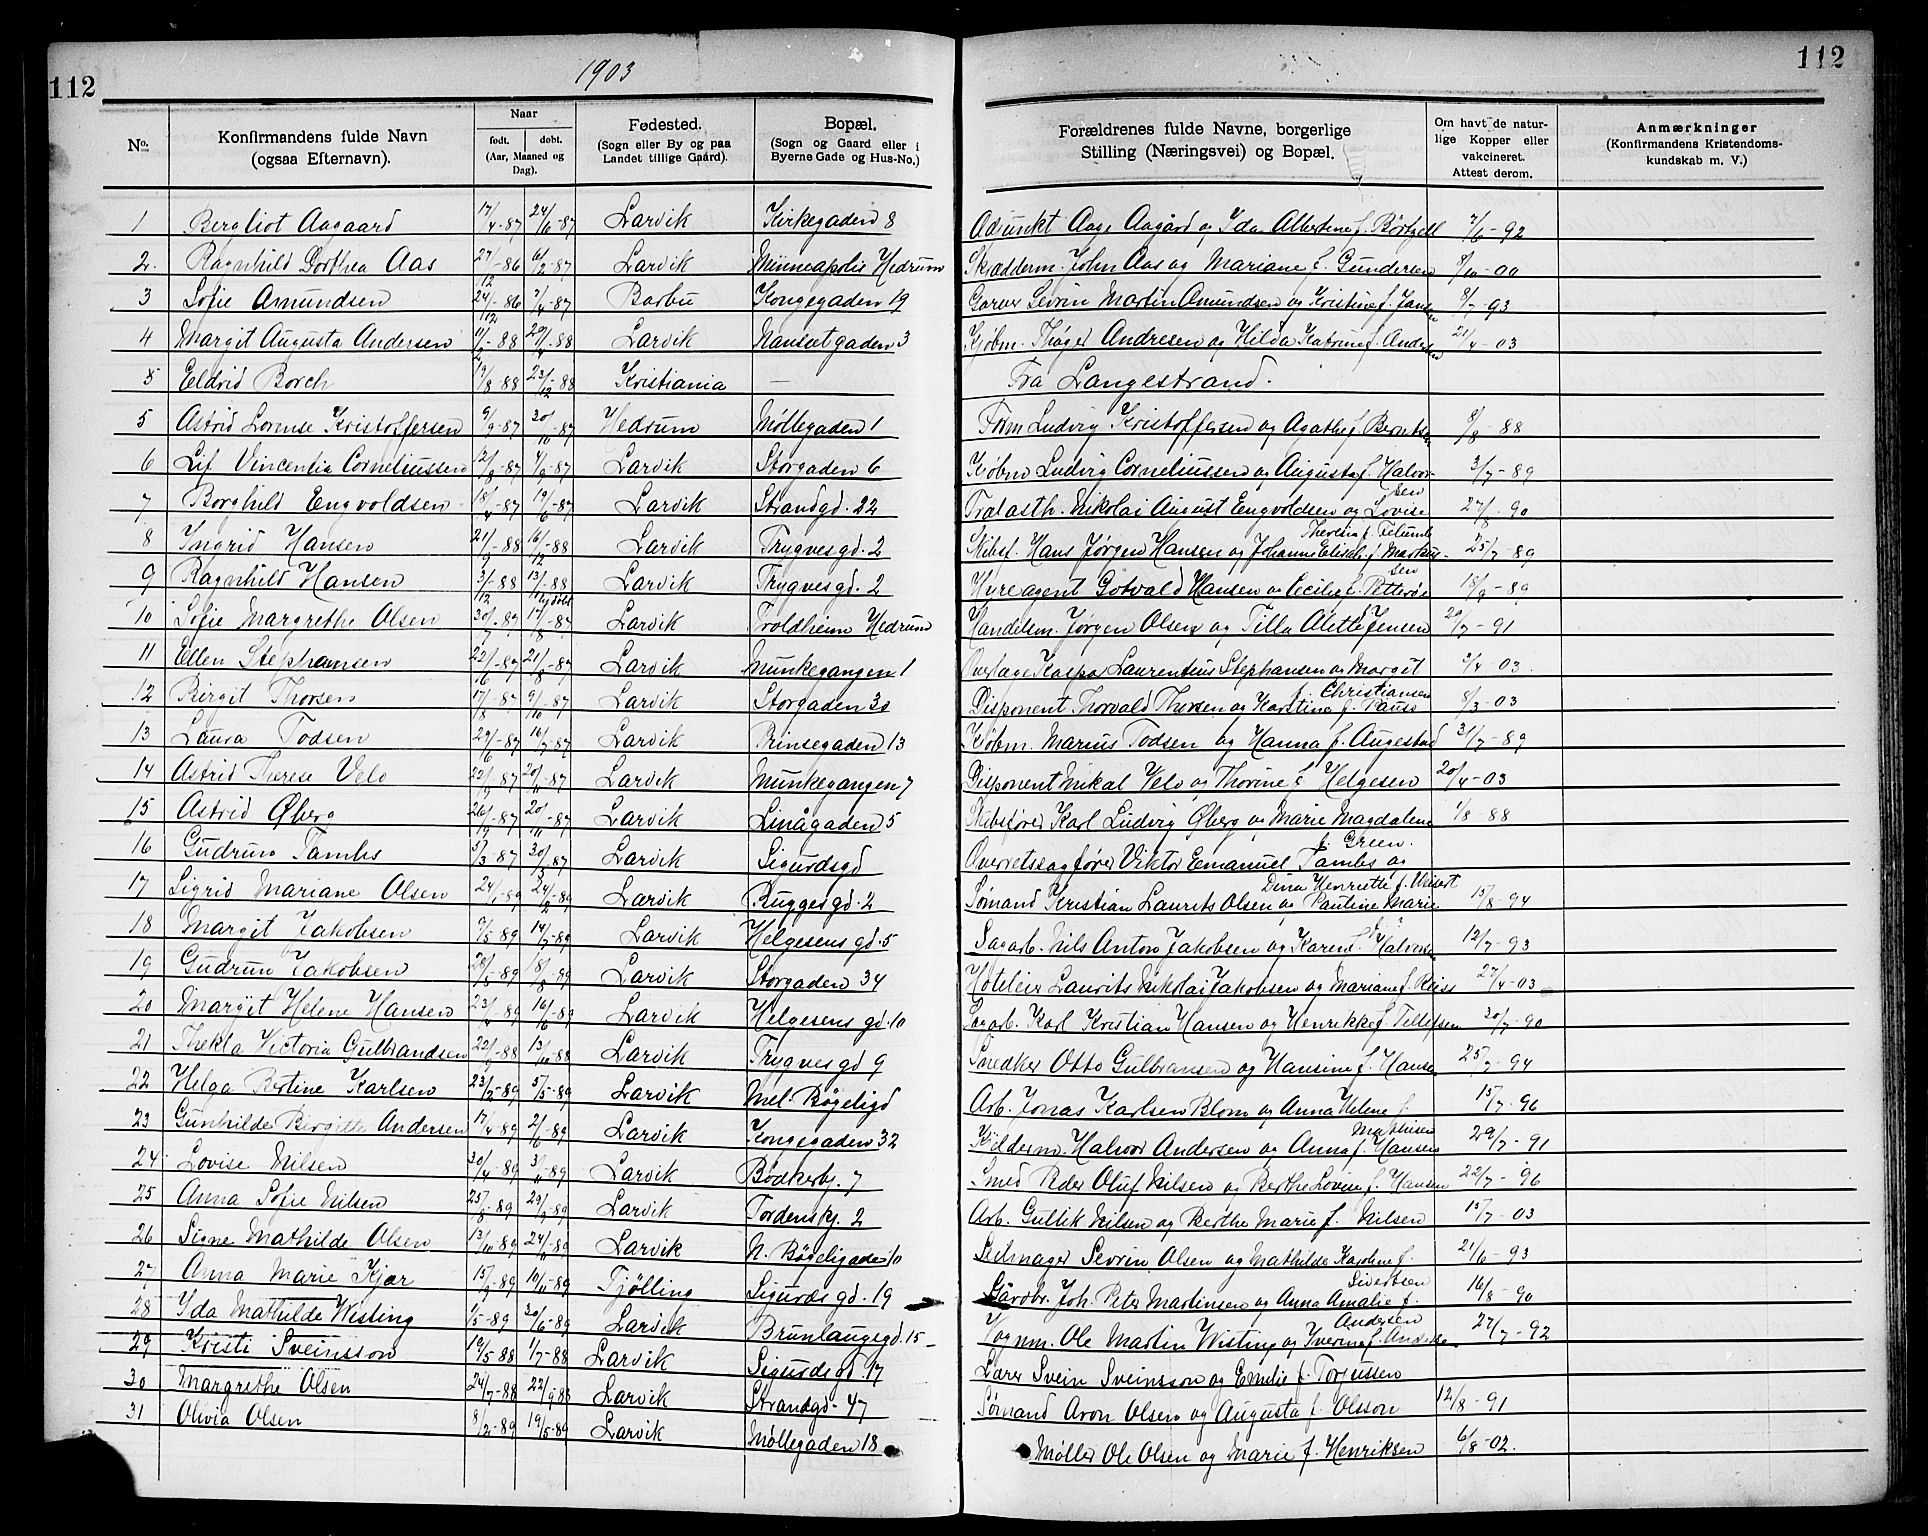 112
1903
112
No.
Konfirmandens fulde Navn (ogsaa Efternavn).
Naar
født. døbt.
(Aar, Maaned og Dag).
Fødested.
(Sogn eller By og paa Landet tillige Gaard).
Bopæl.
(Sogn og Gaard eller i Byerne Gade og Hus-No.)
Forældrenes fulde Navne, borgerlige Stilling (Næringsvei) og Bopæl.
Om havt de naturlige Kopper eller vakcineret. Attest derom.
Anmærkninger
(Konfirmandens Kristendomskundskab m. V.)
1 Bergliot Aagaard 17/4-87 24/6-87 Larvik Kirkegaden 8 Adjunkt Aage Aagård og Ida Albertine f. Börtzell 7/6-92
2. Ragnhild Dorthea Aas 27/12-86 6/2-87 Larvik Minneapolis Hedrum Skrædderm. John Aas og Mariane f. Gundersen 8/10-00
3 Sofie Amundsen 24/12-86 7/4-87 Barbu Kongegaden 19 Garver Sevrin Martin Amundsen og Kristine f. Jansen 8/7-93
4 Margit Augusta Andersen 11/2-88 29/4-88 Larvik Nansetgaden 3 Kjøbm. Thøger Andresen og Hilda Katrine f. Andersen 21/4-03
5 Eldrid Borch 19/8-88 23/12-88 Kristiania — Fra Langestrand.
5 Astrid Lorense Kristoffersen 9/9-87 30/10-87 Hedrum Møllegaden 1 Form Ludvig Kristoffersen og Agathe f. Berntsen 8/8-88
6 Lif Vincentia Corneliussen 12/8-87 4/9-87 Larvik Storgaden 6 Kjøbm Ludvig Corneliussen og Augusta f. Halvorsen 3/7-89
7 Borghild Engvoldsen 18/4-87 19/6-87 Larvik Strandgd. 22 Trælasth. Nikolai August Engvoldsen og Lovise 27/8-90
8 Ingrid Hansen 21/9-88 16/12-88 Larvik Trygvesgd. 2 Skibsf. Hans Jørgen Hansen og Johanne f. Markussen 25/7-89
9 Ragnhild Hansen 3/12-88 13/-88 Larvik Trygvesgd. 2 Hyreagent Gotvald Hansen og Cecilie f. Petterøe 18/9-89
10 Sofie Margrethe Olsen 30/7-87 17/8-87 Larvik Troldheim Hedrum Handelsm. Jørgen Olsen og Tilla Alette Jensen 29/7-91
11 Ellen Stephansen 22/6-87 21/8-87 Larvik Munkegangen 1 Kaspar Laurentius Stephansen og Margit f. Christiansen 2/4-03.
12 Birgit Thorsen 17/8-87 9/10-87 Larvik Storgaden 30 Disponent Thorvald Thorsen og Karstine f. Pauss 8/3-03
13 Laura Todsen 29/6-87 16/7-87 Larvik Prinsegaden 13 Kjøbm. Marius Todsen og Hanna f. Augestad 31/7-89
14 Astrid Therese Velo 22/9-87 20/11-87 Larvik Munkegangen 7 Disponent Mikal Velo og Thorine f. Helgesen 20/4-03
15 Astrid Øberg 26/9-87 20/11-87 Larvik Linågaden 5 Skibsfører Karl Ludvig Øberg og Marie Magdalene f. Green. 1/8-88
16 Gudrun Tambs 5/3-87 30/5-87 Larvik Sigurdsgd Overretssagfører Viktor Emanuel Tambs og Dina Henriette f. Weisert
17 Sigrid Mariane Olsen 24/1-89 24/2-89 Larvik Ruggesgd. 2 Sømand Kristian Laurits Olsen og Pautine Marie 15/8-94
18 Margit Jakobsen 9/5-89 14/7-89 Larvik Helgesens gd. 5 Sagarb. Nils Anton Jakobsen og Karen f. Halvorsen 12/7-93
19 Gudrun Jakobsen 28/5-89 18/8-89 Larvik Storgaden 34 Hoteleier Laurits Nikolai Jakobsen og Mariane f. Reiss 27/4-03
20 Margit Helene Hansen 23/4-89 16/6-89 Larvik Helgesens gd. 10 Sagarb. Karl Kristian Hansen og Henrikke f. Tellefsen 30/7-90
21 Thekla Victoria Gulbrandsen 22/-88 13/10-88 Larvik Trygvesgd 9 Snedker Otto Gulbransen og Hansine f. Hansen 25/7-94
22 Helga Bertine Karlsen 23/2-89 5/5-89 Larvik Mel. Bøgeligd Arb. Jonas Karlsen Blom og Anna Helene f. Mathisen 15/7-96
23 Gunhilde Birgitte Andersen 17/4-89 2/6-89 Larvik Kongegaden 32 Kjelderm. Halvor Andersen og Anna f. Hansen 29/7-91
24 Lovise Nilsen 30/4-89 3/11-89 Larvik Bødkerbj. 7 Smed Peder Oluf Nilsen og Berthe Lovise f. Hansen 22/7-96
25 Anna Sofie Nilsen 25/8-89 29/9-89 Larvik Tordenskj. 2 Arb. Gullik Nilsen og Berthe Marie f. Nilsen 15/7-03
26 Signe Mathilde Olsen 13/10-89 24/11-89 Larvik N. Bøgeligaden 10 Seilmager Sevrin Olsen og Mathilde Karoline f. Sivertsen 21/6-93
27 Anna Marie Kjær 15/9-89 10/11-89 Tjølling Sigurds gd. 19 Gårdbr. Joh. Peter Martinsen og Anna Amalie f. Andersen 16/8-90
28 Ida Mathilde Wisting 1/5-89 30/6-89 Larvik Brunlaugsgd. 15 Vognm. Ole Martin Wisting og Iverine f. Andersen 27/7-92
29 Kristi Sveinsson 19/5 88 1/7-88 Larvik Sigurdsgd. 17 Lærer Svein Sveinsson og Emilie f. Torjussen
30 Margrethe Olsen 24/7-88 22/9-88 Larvik Strandgd. 47 Sømand Aron Olsen og Augusta f. Olsson 12/8-91
31 Olivia Olsen 8/2-89 19/5-89 Larvik Møllegaden 18 Møller Ole Olsen og Marie f. Henriksen 6/8-02.